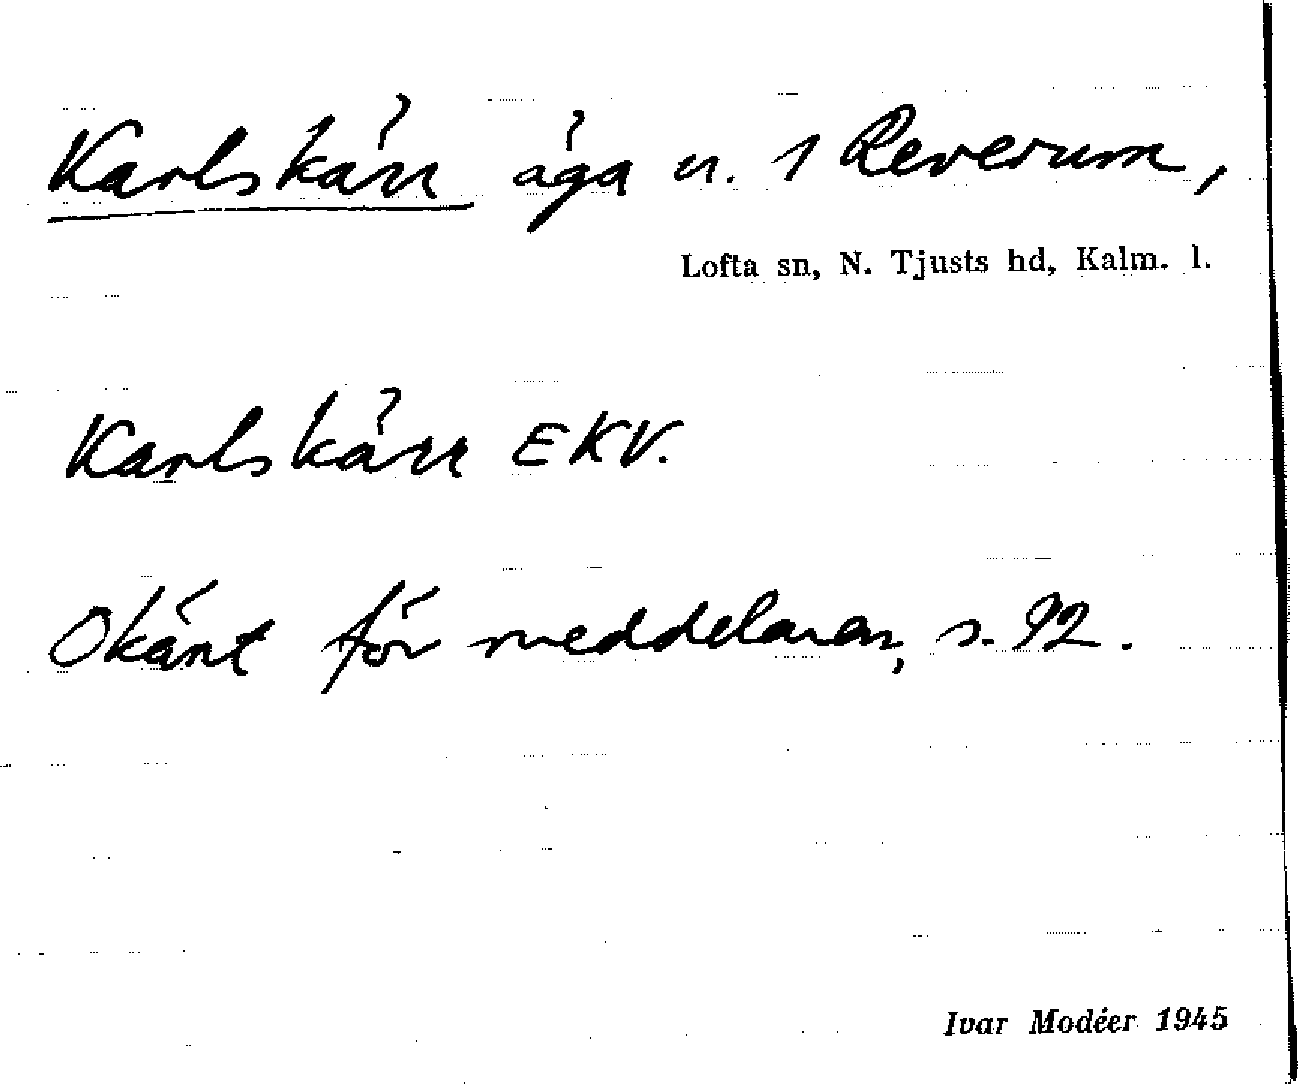 Karlskärr äga n. 1 Reverum,
Lofta sn, N. Tjusts hd, Kalm. l.
Karlskärr EKV.
Okänt för meddelaren, s. 92.
Ivar Modéer 1945